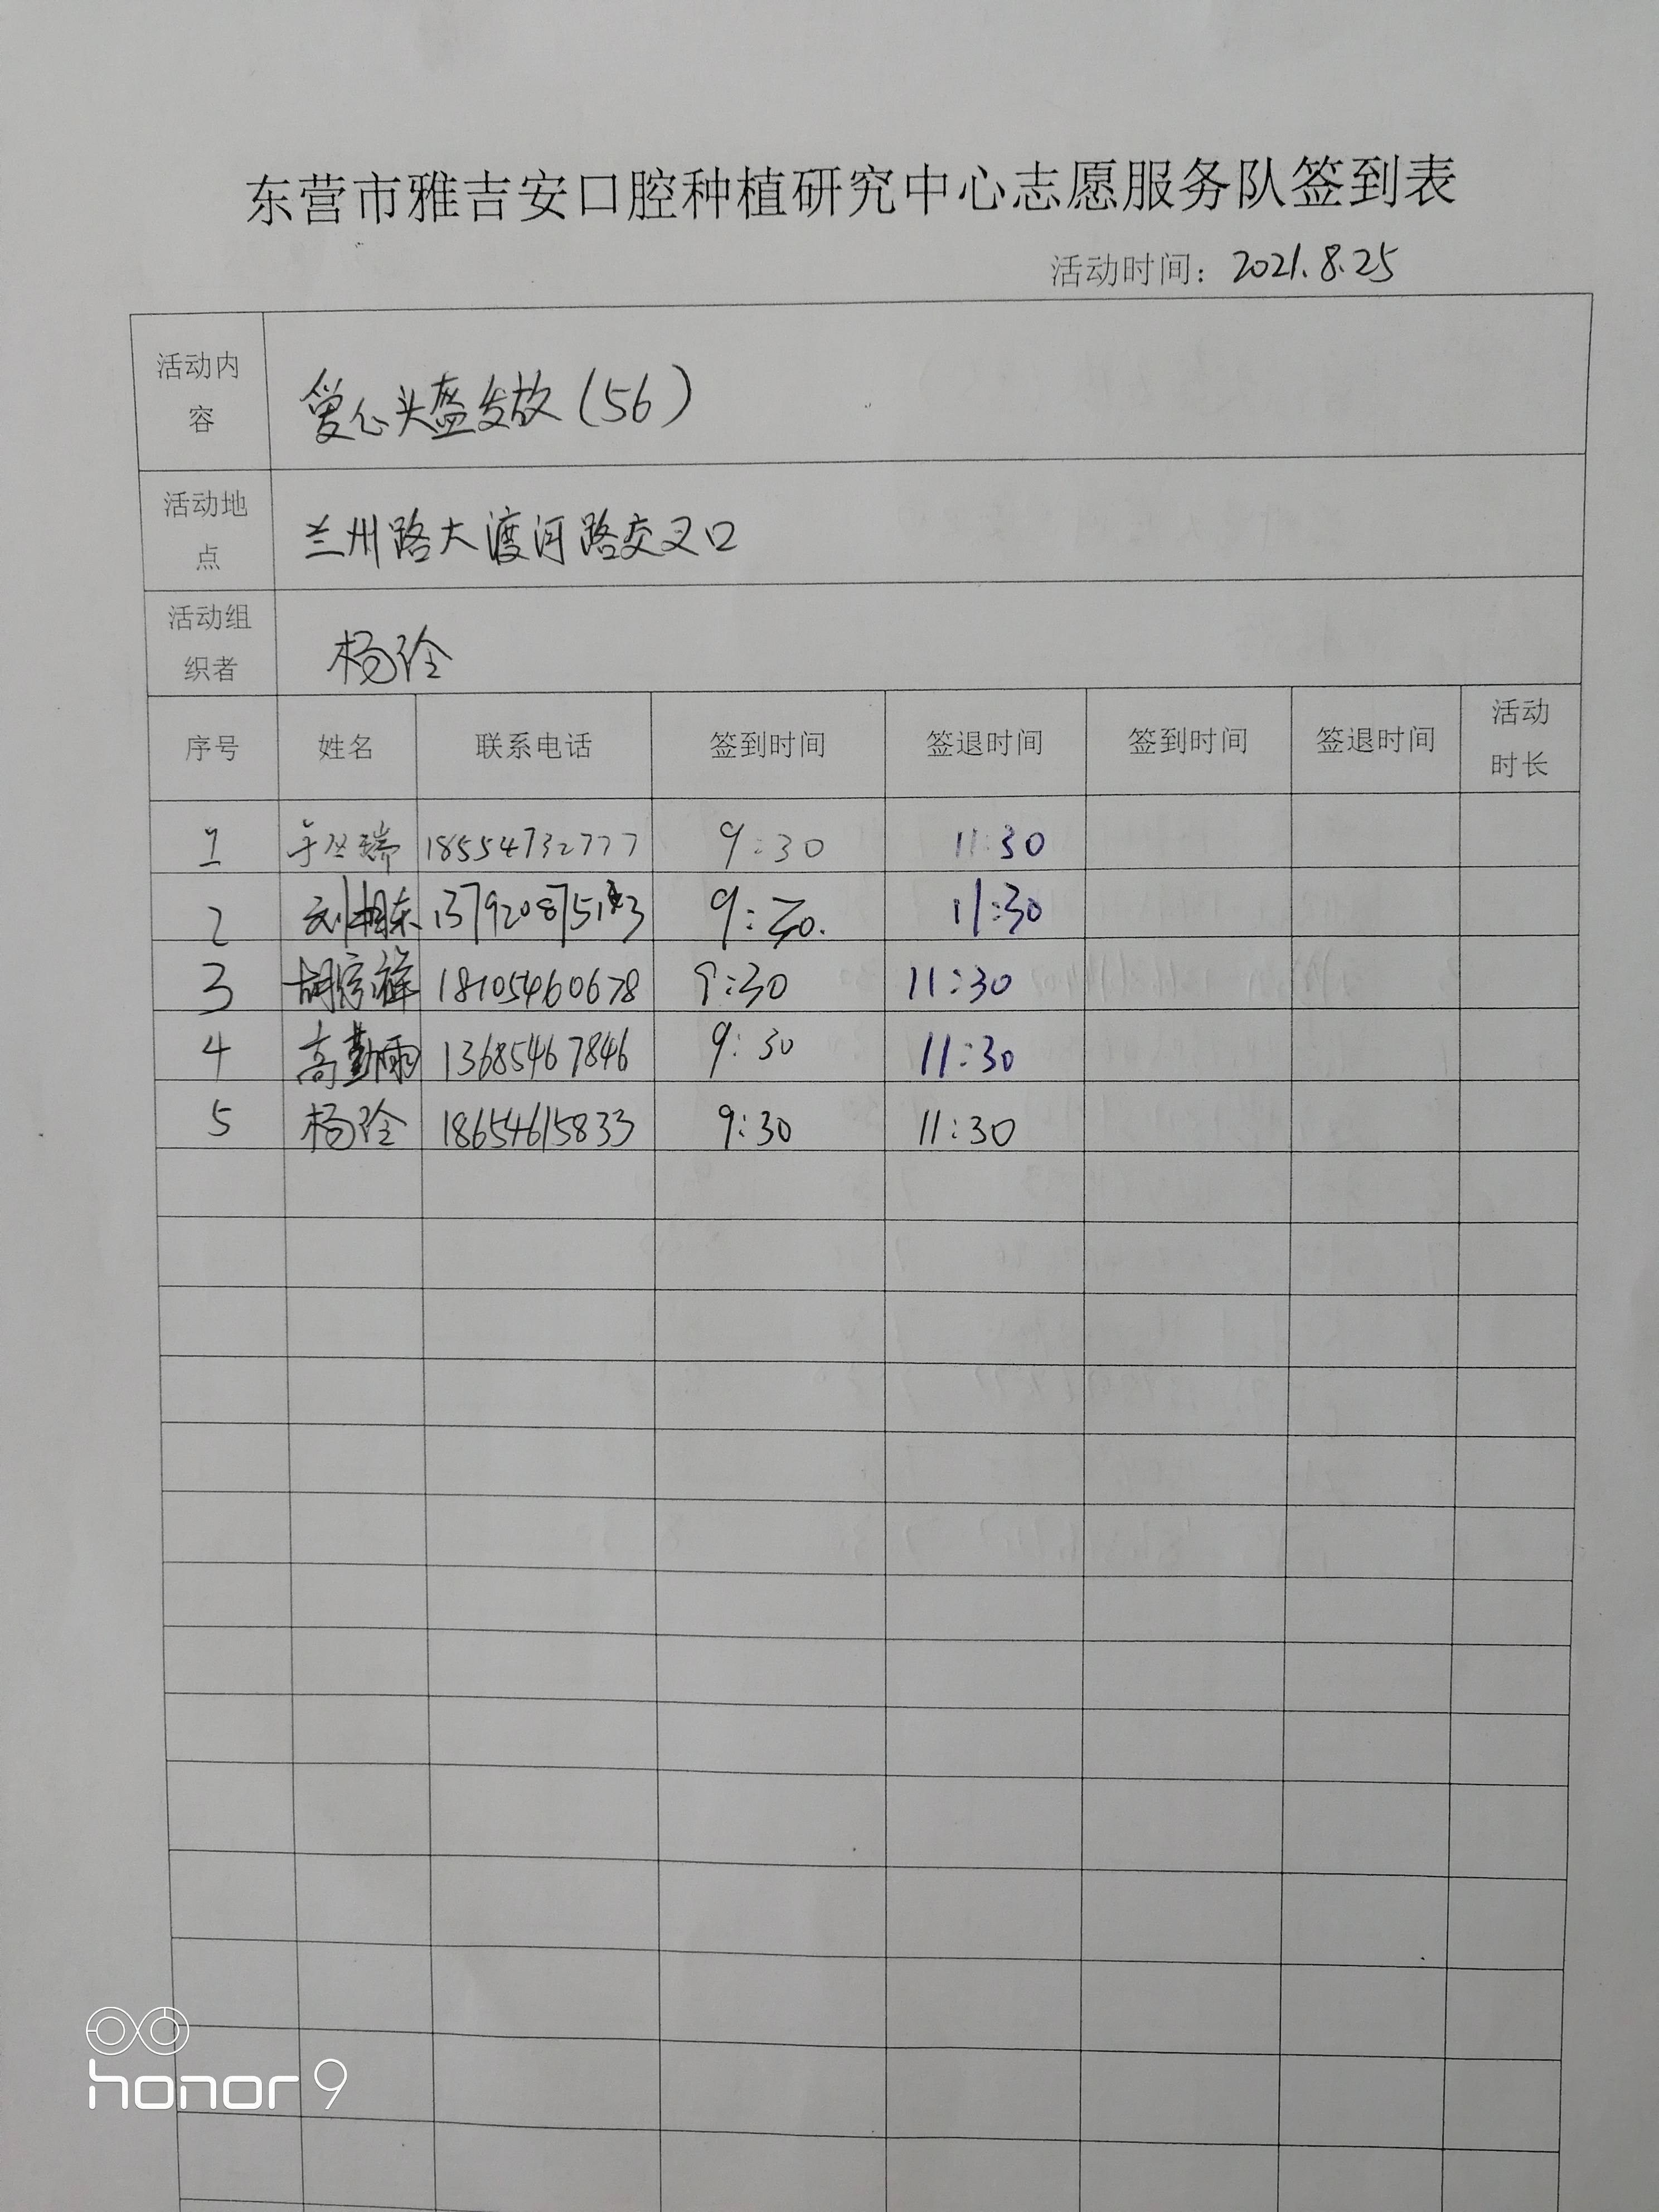 东营市雅吉安口腔种植研究中心志愿服务队签到表
活动时间：2021.8.25
活动内容 爱心头盔发放（56）
活动地点 兰州路大渡河路交叉口
活动组织者 杨玲
序号 姓名 联系电话 签到时间 签退时间 签到时间 签退时间 活动时长
1 于丛瑞 18554732777 9:30 11:30
2 刘相东 9:30. 11:30
3 胡宗祥 18105460678 9:30 11:30
4 高勤雨 13685467846 9:30 11:30
5 杨玲 18654615833 9:30 11:30
honor 9